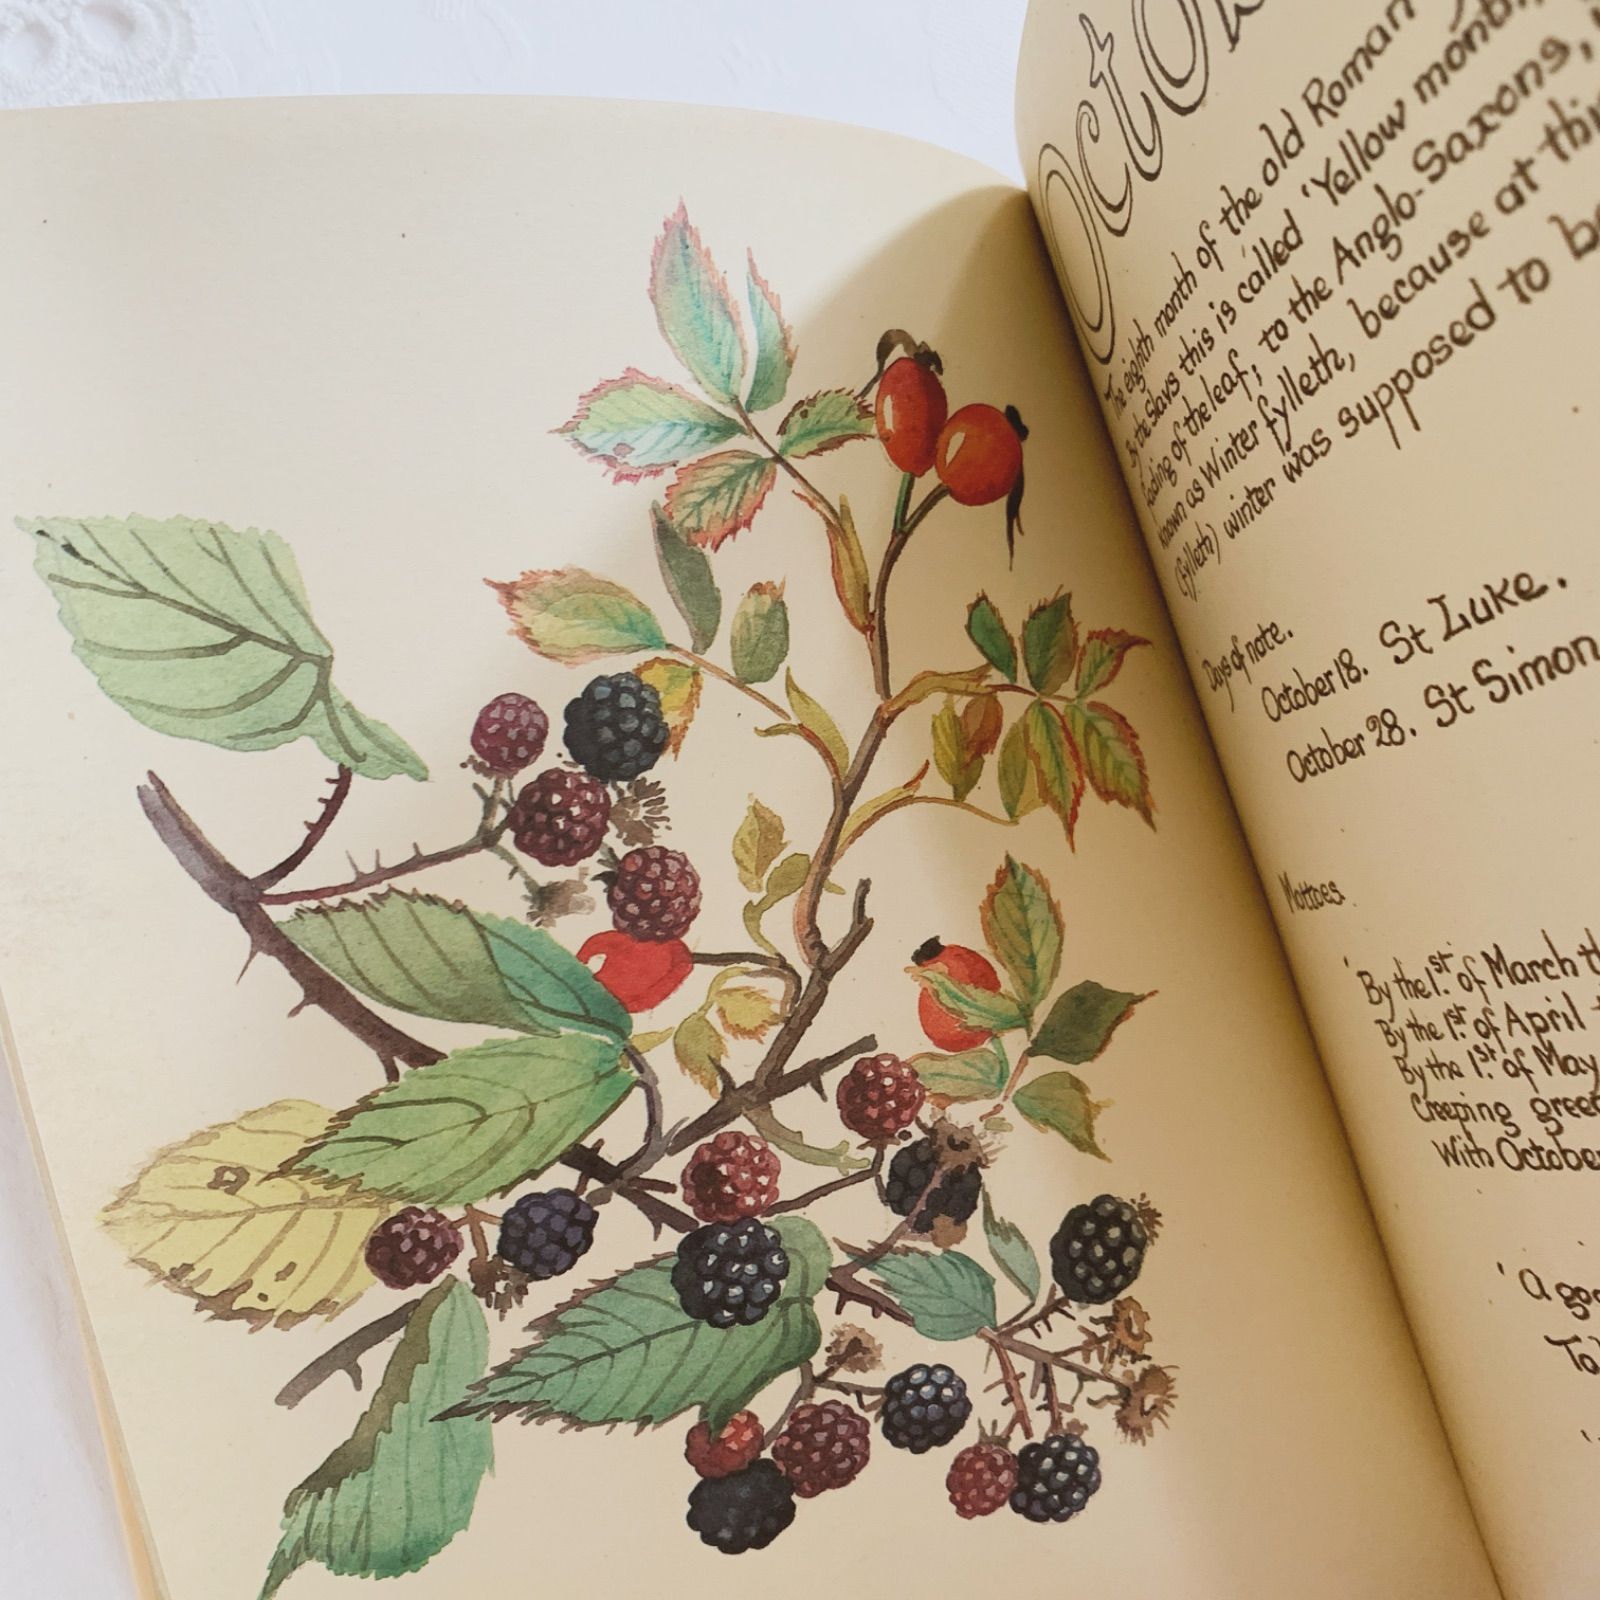 Octo
The eighth month of the old Roman
By the Slavs this is called 'Yellow month
fading of the leaf; to the Anglo-Saxons,
known as Winter fylleth, because at this
(fylleth) winter was supposed to be
Days of note.
October 18. St Luke.
October 28. St Simon
Mottoes.
'By the 1st. of March
By the 1st. of April
By the 1st. of May
Creeping
With October
'A